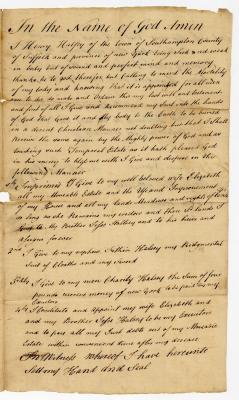 In the Name of God Amen
I Henry Halsey of the town of Southampton County
of Suffolk and province of new york being Sick and weak
in body but of sound and perfect mind and memory
thanks be to god therefor but Calling to mind the Mortality
of my body and knowing that it is appointed for all men
once to die do make and Ordain this my last will and testament
and first of all I Give and Recommend my Soul into the hands
of God that Gave it and my body to the Earth to be buried
in a decent Christian Manner not doubting but that I Shall
Receive the same again by the mighty power of God and as
touching such Temporal Estate as it hath pleased God
in his mercy to bless me with I Give and dispose in the
following Manner
Imprimis I Give to my well beloved wife Elizabeth
all my Moveable Estate and the Use and Improvement
of my House and all my Lands Meadows and rights of Land
so long as she Remains my widow and then all Lands I
to My Brother Jesse Halsey and to his heirs and
assigns forever
I Give to my nephew Halsey my
Suit of Cloaths and my Sword
I Give to my Charity Halsey the Sum of four
pounds current money of new york to be paid by my
Executors
I Constitute and Appoint my wife Elizabeth and
and my Brother Jesse Halsey to be my Executors
and to pay all my Just debts out of my Moveable
Estate within convenient time after my decease
In Witness whereof I have hereunto
Set my Hand And Seal